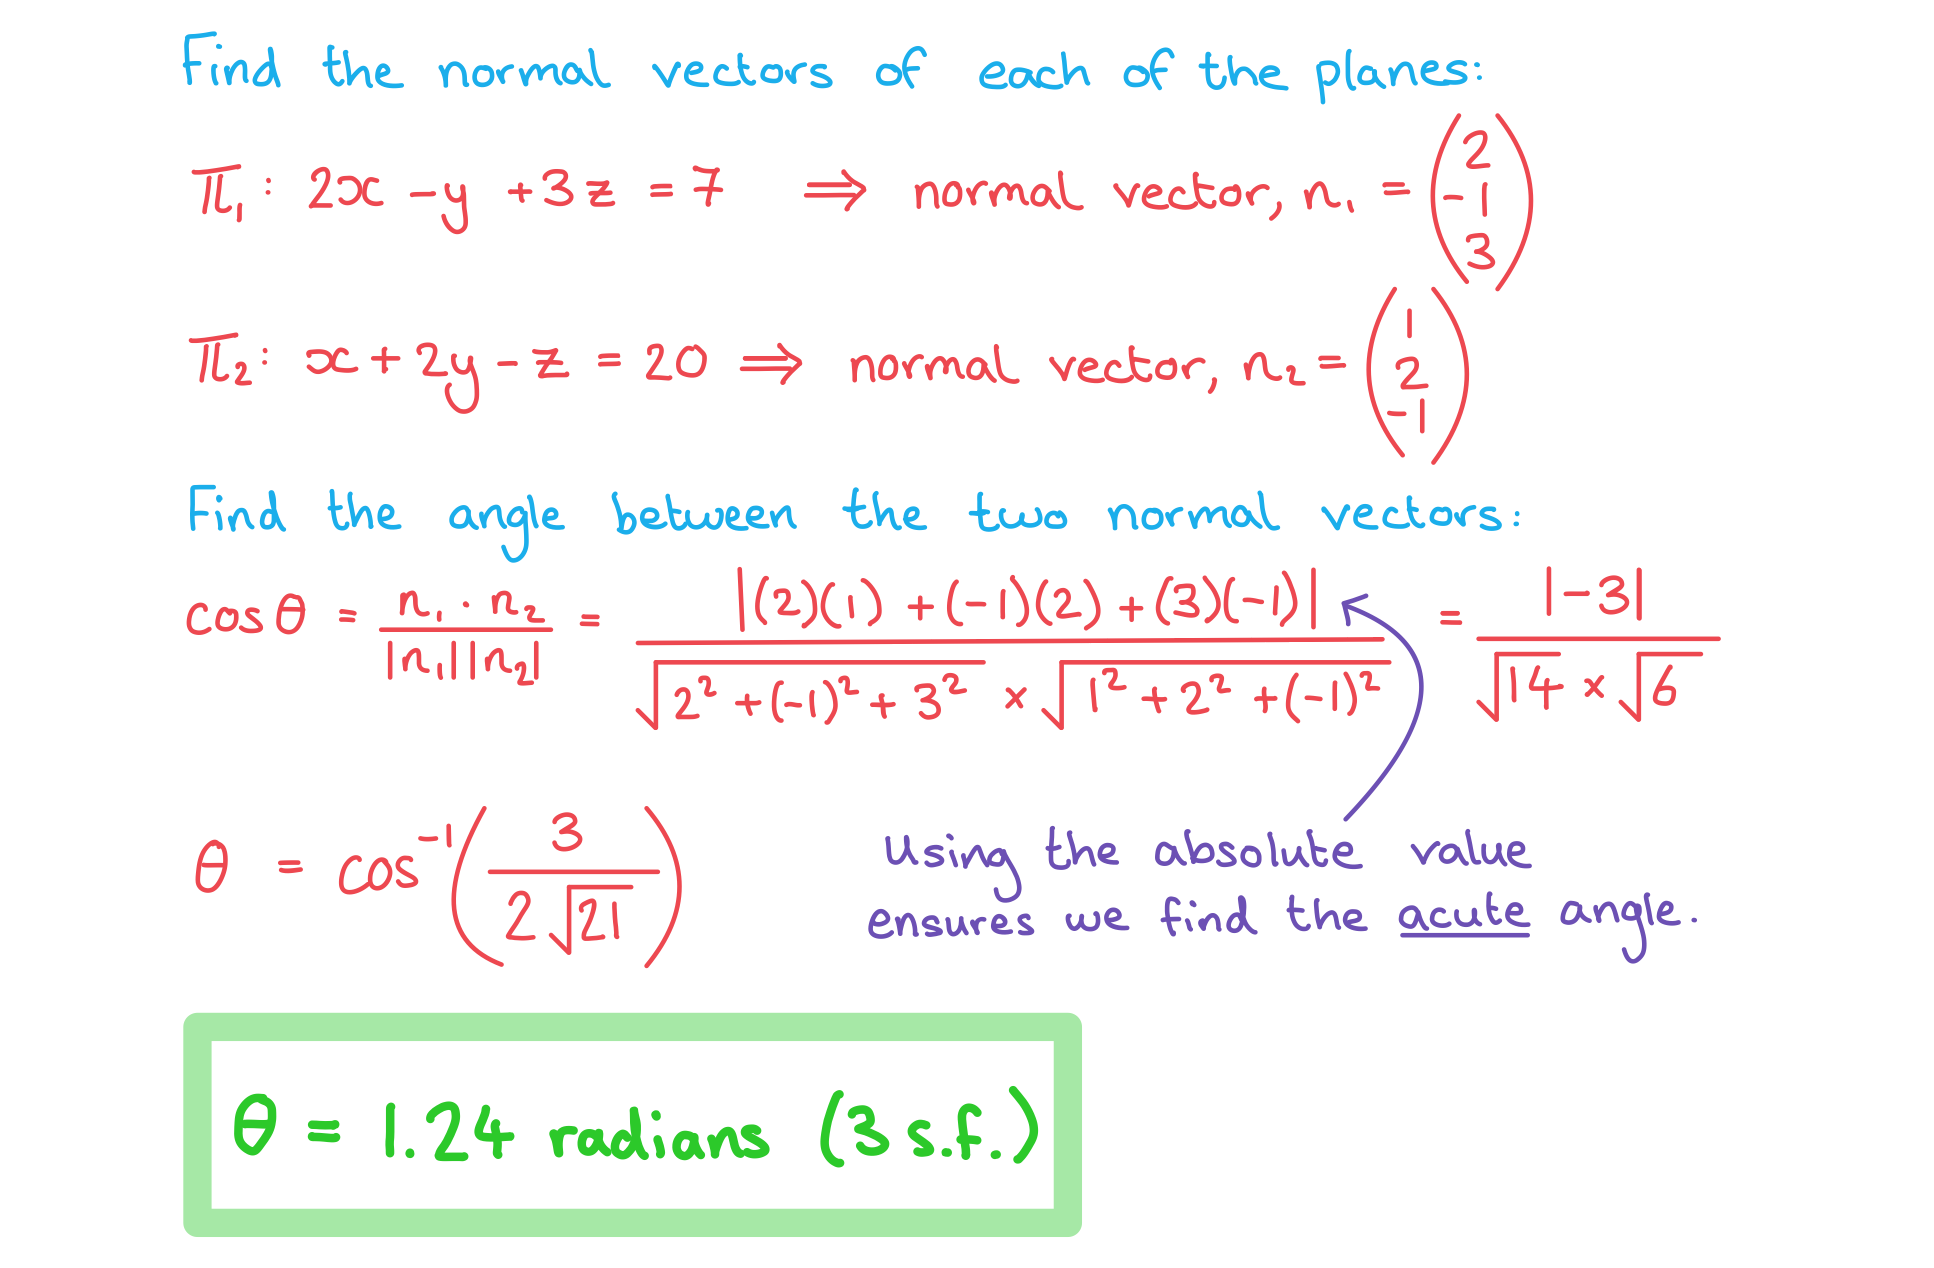 Find the normal vectors of each of the planes:
π₁: 2x − y + 3z = 7 ⟹ normal vector, n₁ = (2 −1 3)
π₂: x + 2y − z = 20 ⟹ normal vector, n₂ = (1 2 −1)
Find the angle between the two normal vectors:
cos θ = n₁ · n₂ / |n₁||n₂| = |(2)(1) + (−1)(2) + (3)(−1)| / √(2² + (−1)² + 3²) × √(1² + 2² + (−1)²) = |−3| / √14 × √6
θ = cos⁻¹(3 / 2√21)
Using the absolute value
ensures we find the acute angle.
θ = 1.24 radians (3 s.f.)